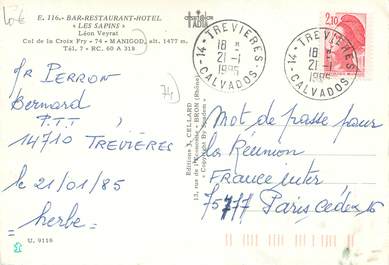 E. 116.- BAR-RESTAURANT-HOTEL
« LES SAPINS »
Léon Veyrat
Col de la Croix Fry - 74 - MANIGOD, alt. 1477 m.
Tél. 7 - RC. 60 A 318
PERRON
Bernard
P.T.T.
14710 TREVIÈRES
le 21/01/85
herbe
U. 9116
Editions J. CELLARD
BRON (Rhône)
14 - TREVIERES
18 H
21-1
1985
CALVADOS
14 - TREVIERES
18 H
21-1
1985
CALVADOS
2,10
Mot de passe pour
la Réunion
France inter
75777 Paris Cedex 16